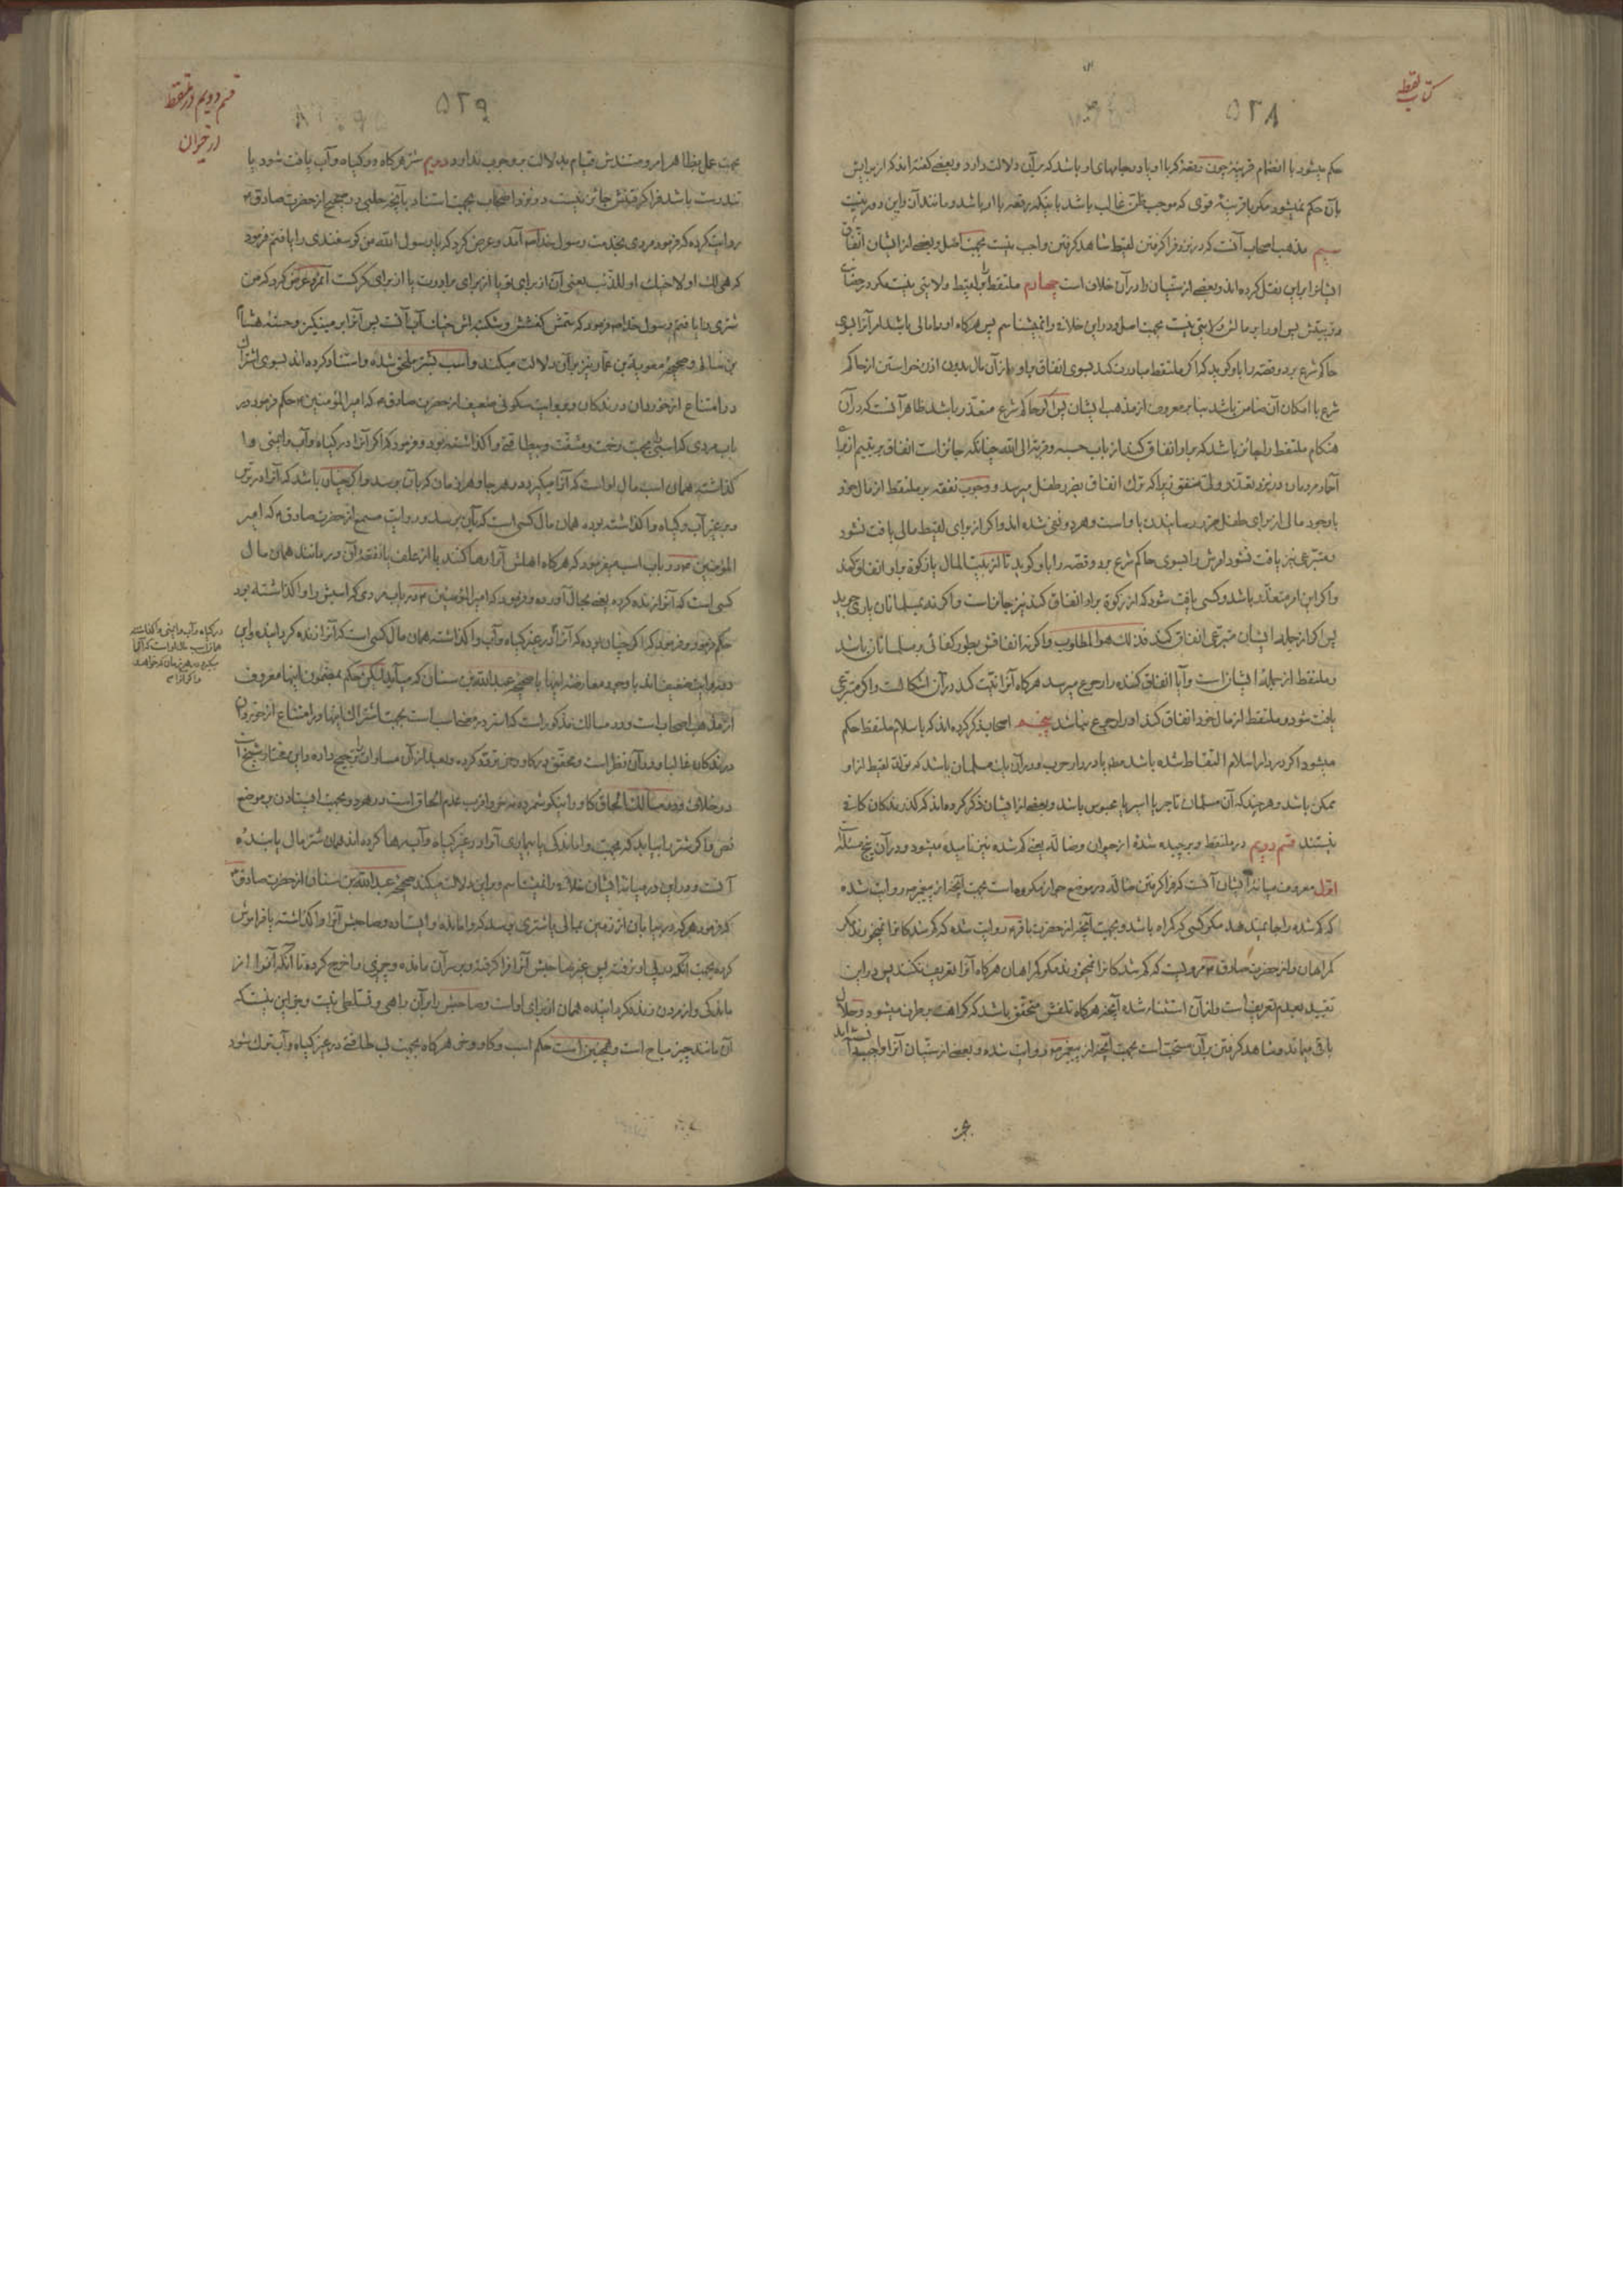 کتاب لقطه
۵۲۸
حکم میشود با انضمام قرینه چون رقعهٔ که با او یا در جامهای او باشد که بر آن دلالت دارد و بعضی گفته‌اند که از برایش
بآن حکم نمیشود مگر با قرینهٔ قوی که موجب ظن غالب باشد باینکه رقعه با او باشد و مانند آن و این دور نیست
سیم مذهب اصحاب آنست که در نزد فرا گرفتن لقیط شاهد گرفتن واجب نیست بجهت اصل و بعضی از ایشان اتفاق
ایشانرا بر این نقل کرده‌اند و بعضی از سنیان را در آن خلاف است چهارم ملتقط را بر لقیط ولایتی نیست مگر در حضانت
و تربیتش پس او را بر مالش ولایتی نیست بجهت اصل و در این خلافی را نمیشناسم پس هرگاه او را مالی باشد امر آنرا بسوی
حاکم شرع برد و قصه را باو گوید که اگر ملتقط مبادرت کند بسوی انفاق بر او از آن مال بدون اذن خواستن از حاکم
شرع با امکان آن ضامن باشد بنا بر معروف از مذهب ایشان پس اگر حاکم شرع متعذر باشد ظاهر آنست که در آن
هنگام ملتقط را جائز باشد که بر او انفاق کند از باب حسبه و قربة الی الله چنانکه جائز است انفاق بر یتیم از برای
آحاد مردمان در نزد تعذر ولی متفق زیرا که ترک انفاق بضرر طفل میرسد و وجوب نفقه بر ملتقط از مال خود
با وجود مالی از برای طفل ضرر رسانیدن باو است و هر دو نفی شده‌اند و اگر از برای لقیط مالی یافت نشود
و متبرعی نیز یافت نشود امرش را بسوی حاکم شرع برد و قصه را باو گوید تا از بیت المال یا زکوة بر او انفاق کند
و اگر این امر متعذر باشد و کسی یافت شود که از زکوة بر او انفاق کند نیز جائز است و اگر نه بمسلمانان یاری جوید
پس اگر از جمله ایشان متبرعی انفاق کند فذلک هو المطلوب و اگر نه انفاقش بطور کفائی بر مسلمانان باشد
و ملتقط از جملهٔ ایشان است و آیا انفاق کننده را رجوع میرسد هرگاه آنرا نیت کند در آن اشکالست و اگر متبرعی
یافت شود و ملتقط از مال خود انفاق کند او را رجوع نباشد پنجم اصحاب ذکر کرده‌اند که باسلام ملتقط حکم
میشود اگر در دار اسلام التقاط شده باشد مطلقا یا در دار حرب و در آن یک مسلمان باشد که تولد لقیط از او
ممکن باشد و هرچند که آن مسلمان تاجر یا اسیر یا محبوس باشد و بعضی از ایشان ذکر کرده‌اند که گذرندگان کافی
نیستند قسم دویم در ملتقط و برچیده شدهٔ از حیوان و ضاله یعنی گم شده نیز نامیده میشود و در آن پنج مسئله است
اول معروف میانهٔ ایشان آنست که فرا گرفتن ضاله در موضع جواز مکروه است بجهت آنچه از پیغمبر ص روایت شده
که گم شده را جا نمیدهد مگر کسی که گمراه باشد و بجهت آنچه از حضرت باقر ع روایت شده که گم شدگانرا نمیخورند مگر
گمراهان و از حضرت صادق ع مرویست که گم شدگانرا نمیخورند مگر گمراهان هرگاه آنرا تعریف نکنند پس در این
تقیید بعدم تعریف است و از آن استثناء شده آنچه هرگاه تلفش متحقق باشد که کراهت برطرف میشود و حلال
باقی میماند و شاهد گرفتن بر آن مستحب است بجهت آنچه از پیغمبر ص روایت شده و بعضی از سنیان آنرا واجب دانسته‌اند
بجهت
قسم دویم در ملتقط
از حیوان
۵۲۹
بجهت عمل بظاهر امر و سندش قیام بدلالت بر وجوب ندارد دویم شتر هرگاه در گیاه و آب یافت شود یا
تندرست باشد فرا گرفتنش جائز نیست در نزد اصحاب بجهت استناد بآنچه حلبی در صحیح از حضرت صادق ع
روایت کرده که فرمود مردی بخدمت رسول خدا ص آمد و عرض کرد که یا رسول الله من گوسفندی را یافتم فرمود
که هی لک او لاخیک او للذئب یعنی آن از برای تو یا از برای برادرت یا از برای گرگست آنمرد عرض کرد که من
شتری را یافتم رسول خدا ص فرمود که سمش کفشش و شکنبه‌اش خیک آب آنست پس آنرا بر مینگیز و حسنهٔ هشام
بن سالم و صحیح معویة بن عمار نیز بر آن دلالت میکند و اسب بشتر ملحق شده و استناد کرده‌اند بسوی اشتراک
در امتناع از خوردن درندگان و بروایت سکونی ضعیف از حضرت صادق ع که امیر المؤمنین ع حکم فرمود در
باب مردی که اسبی بجهت رنجت و مشقت و بیطاقتی وا گذاشته بود و فرمود که اگر آنرا در گیاه و آب و ایمنی وا
گذاشته همان اسب مال او است که آنرا میگیرد در هر جا و هر زمان که بآن برسد و اگر چنان باشد که آنرا در ترس
و در غیر آب و گیاه وا گذاشته بوده همان مال کسی است که بآن برسد و روایت مسمع از حضرت صادق ع که امیر
المؤمنین ع در باب اسب میفرمود که هرگاه اهلش آنرا رها کنند یا از علف یا نفقهٔ آن درمانند همان مال
کسی است که آنرا زنده کرده بعد مجال آورده و فرمود که امیر المؤمنین ع در باب مردی که اسبش را وا گذاشته بود
حکم فرمود و فرمود که اگر چنان بوده که آنرا در غیر گیاه و آب وا گذاشته همان مال کسی است که آنرا زنده گردانیده و این
دو روایت ضعیف‌اند با وجود معارضهٔ اینها با صحیح عبد الله بن سنان که میآید لیکن حکم بمضمون اینها معروف
از مذهب اصحاب است و در مسالک مذکور است که استر در مضحاب است بجهت اشتراک اینها در امتناع از خوردن
درندگان غالبا و در آن نظر است و محقق در گاو و خر تردد کرده و بعد از آن مساوات را ترجیح داده و این مختار شیخ است
در خلاف و در مسالک الحاق گاو را نیکو شمرده نه خر و اقرب عدم الحاق است در هر دو بجهت ایستادن بر موضع
نص و اگر شتر را بیابد که بجهت واماندگی یا بیماری آنرا در غیر گیاه و آب رها کرده‌اند همان شتر مال یابندهٔ
آنست و در این در میانهٔ ایشان خلافی را نمیشناسم و بر این دلالت میکند صحیح عبد الله بن سنان از حضرت صادق ع
که فرمود هر که در بیابان از زمین بمالی یا شتری برسد که وامانده و ایستاده و صاحبش آنرا وا گذاشته یا فراموش
کرده بجهت آنکه در پی او نرفته پس غیر صاحبش آنرا فرا گرفته و بر سر آن مانده و چیزی را خرج کرده تا آنکه آنرا از
ماندگی و از مردن زنده گردانیده همان از برای او است و صاحبش را بر آن راهی و تسلطی نیست و جز این نیست که
آن مانند چیز مباح است و همچنین است حکم اسب و گاو و خر هرگاه بجهت بی طاقتی در غیر گیاه و آب ترک شود